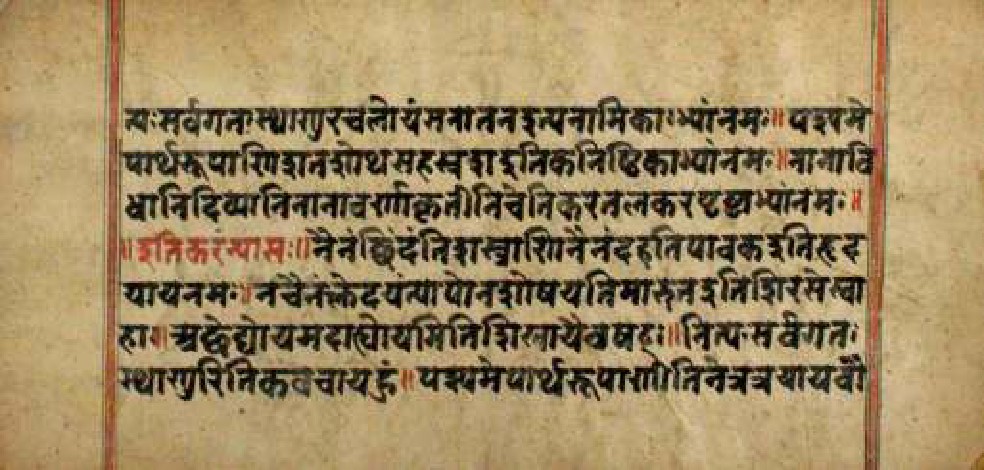 त्यः सर्वगतः स्थाणुरचलोयं सनातन इत्यनामिकाभ्यां नमः ॥ पश्य मे
पार्थ रूपाणि शतशोथ सहस्रश इति कनिष्ठिकाभ्यां नमः ॥ नानावि
धानि दिव्यानि नानावर्णाकृतीनि चेति करतलकरपृष्ठाभ्यां नमः ॥
॥ इति करन्यासः ॥ नैनं छिंदंति शस्त्राणि नैनं दहति पावक इति हृद
याय नमः ॥ न चैनं क्लेदयंत्यापो न शोषयति मारुत इति शिरसे स्वा
हा ॥ अछेद्योयमदाह्योयमिति शिखायै वषट् ॥ नित्यः सर्वगतः
स्थाणुरिति कवचाय हुं ॥ पश्य मे पार्थ रूपाणीति नेत्रत्रयाय वौ